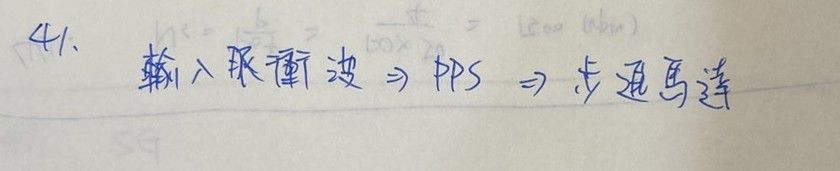 41.
輸入脈衝波 ⇒ PPS ⇒ 步進馬達